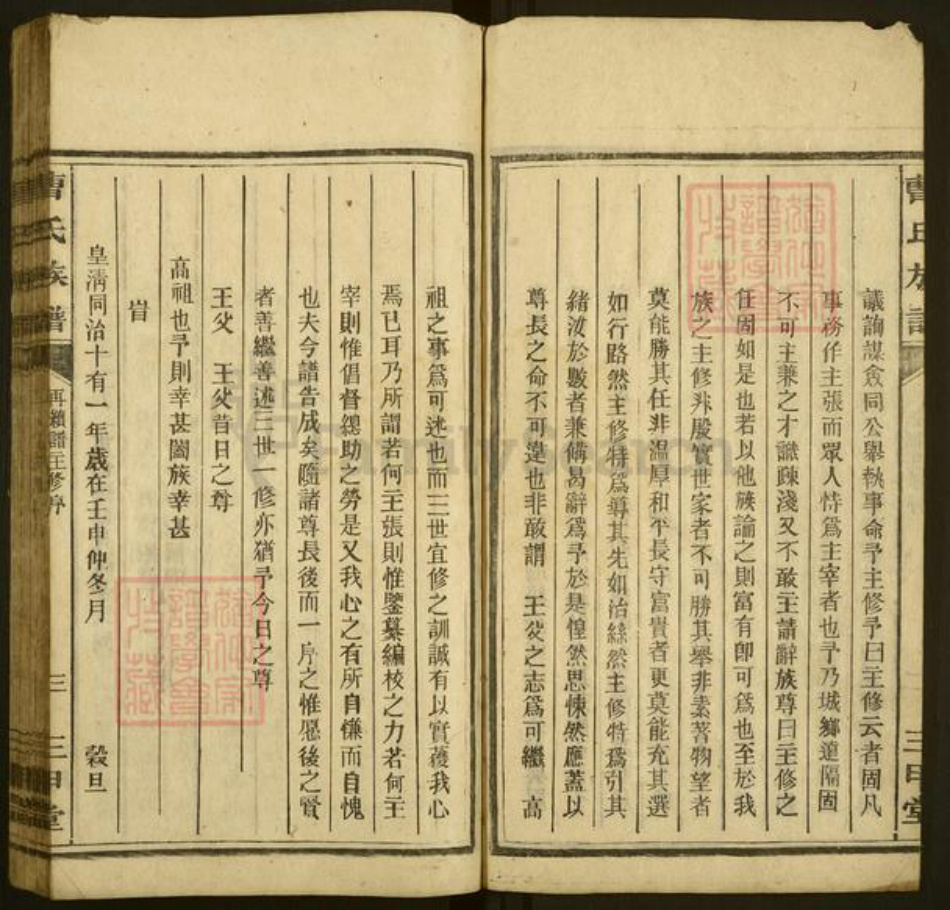 曹氏族譜
議詢謀僉同公舉執事命予主修予曰主修云者固凡
事務作主張而眾人恃爲主宰者也予乃城鄉遠隔固
不可主兼之才識疎淺又不敢主請辭族尊曰主修之
任固如是也若以他族論之則富有卽可爲也至於我
族之主修非殷實世家者不可勝其舉非素著物望者
莫能勝其任非温厚和平長守富貴者更莫能充其選
如行路然主修特爲導其先如治絲然主修特爲引其
緒汝於數者兼備曷辭爲予於是惶然思悚然應蓋以
尊長之命不可違也非敢謂 王父之志爲可繼 高
祖之事爲可述也而三世宜修之訓誠有以實獲我心
焉已耳乃所謂若何主張則惟鑒纂編校之力若何主
宰則惟倡督緩助之勞是又我心之有所自慊而自愧
也夫今譜告成矣隨諸尊長後而一序之惟愿後之賢
者善繼善述三世一修亦猶予今日之尊
王父 王父昔日之尊
高祖也予則幸甚闔族幸甚
旹
皇清同治十有一年歲在壬申仲冬月 穀旦
曹氏族譜
再續譜主修序
三
三甲堂
FamilySearch